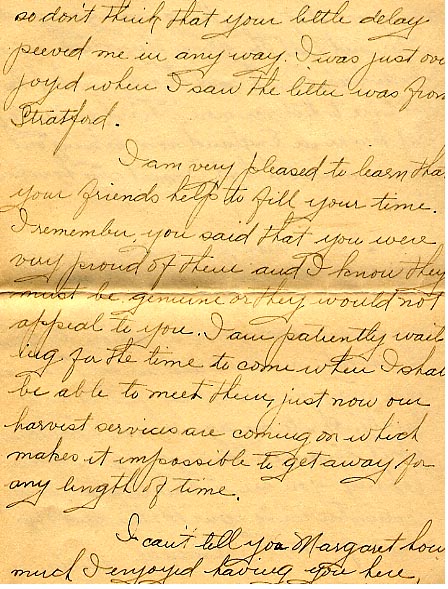 so don't think that your little delay
peeved me in any way. I was just ov
joyed when I saw the letter was from
Stratford.
I am very pleased to learn tha
your friends help to fill your time.
I remember you said that you were
very proud of them and I know they
must be genuine or they would not
appeal to you. I am patiently wait
ing for the time to come when I shal
be able to meet them, just now our
harvest services are coming on which
makes it impossible to get away for
any length of time.
I can't tell you Margaret how
much I enjoyed having you here,